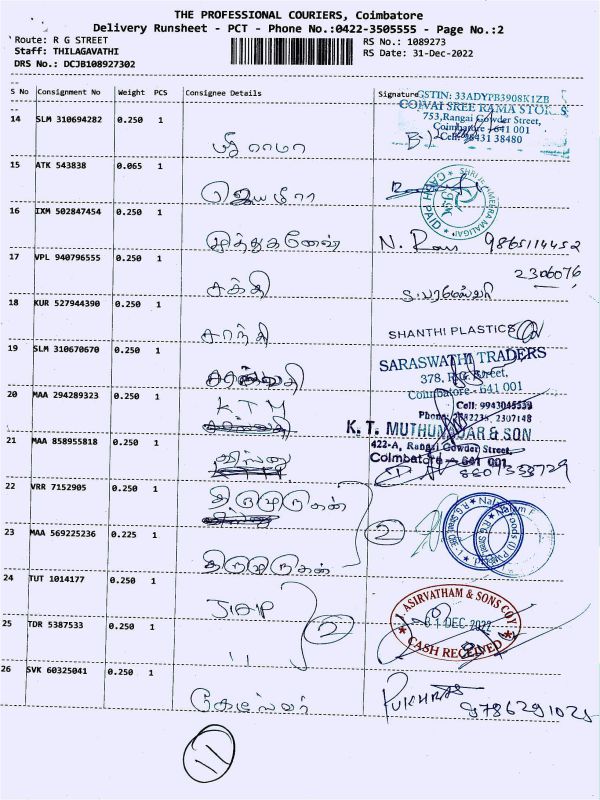 THE PROFESSIONAL COURIERS, Coimbatore
Delivery Runsheet - PCT - Phone No.:0422-3505555 - Page No.:2
Route: R G STREET
RS No.: 1089273
Staff: THILAGAVATHI
RS Date: 31-Dec-2022
DRS No.: DCJB108927302
S No Consignment No Weight PCS Consignee Details Signature
GSTIN: 33ADYPB3908K1ZB
14 SLM 310694282 0.250 1
COIVAI SREE RAMA STORES
753,Rangai Gowder Street,
Coimbatore - 641 001
Cell: 98431 38480
ஸ்ரீ ராமா
15 ATK 543838 0.065 1
CASH PAID
ஜெயமீரா
16 IXM 502847454 0.250 1
முத்துகணேஷ் N. Ram 9865114452
17 VPL 940796555 0.250 1
2306076
சக்தி
18 KUR 527944390 0.250 1
சாந்தி SHANTHI PLASTICS
19 SLM 310670670 0.250 1
SARASWATHI TRADERS
378, R.G. Street,
Coimbatore - 641 001
20 MAA 294289323 0.250 1
KTM
K. T. MUTHU & SON
422-A, Rangai Gowder Street,
Coimbatore - 641 001
21 MAA 858955818 0.250 1
22 VRR 7152905 0.250 1
திருமுருகன்
2
23 MAA 569225236 0.225 1
திருமுருகன்
24 TUT 1014177 0.250 1
J. ASIRVATHAM & SONS COY
31 DEC 2022
CASH RECEIVED
2
25 TDR 5387533 0.250 1
"
26 SVK 60325041 0.250 1
PUKHRAJ 9786291025
11